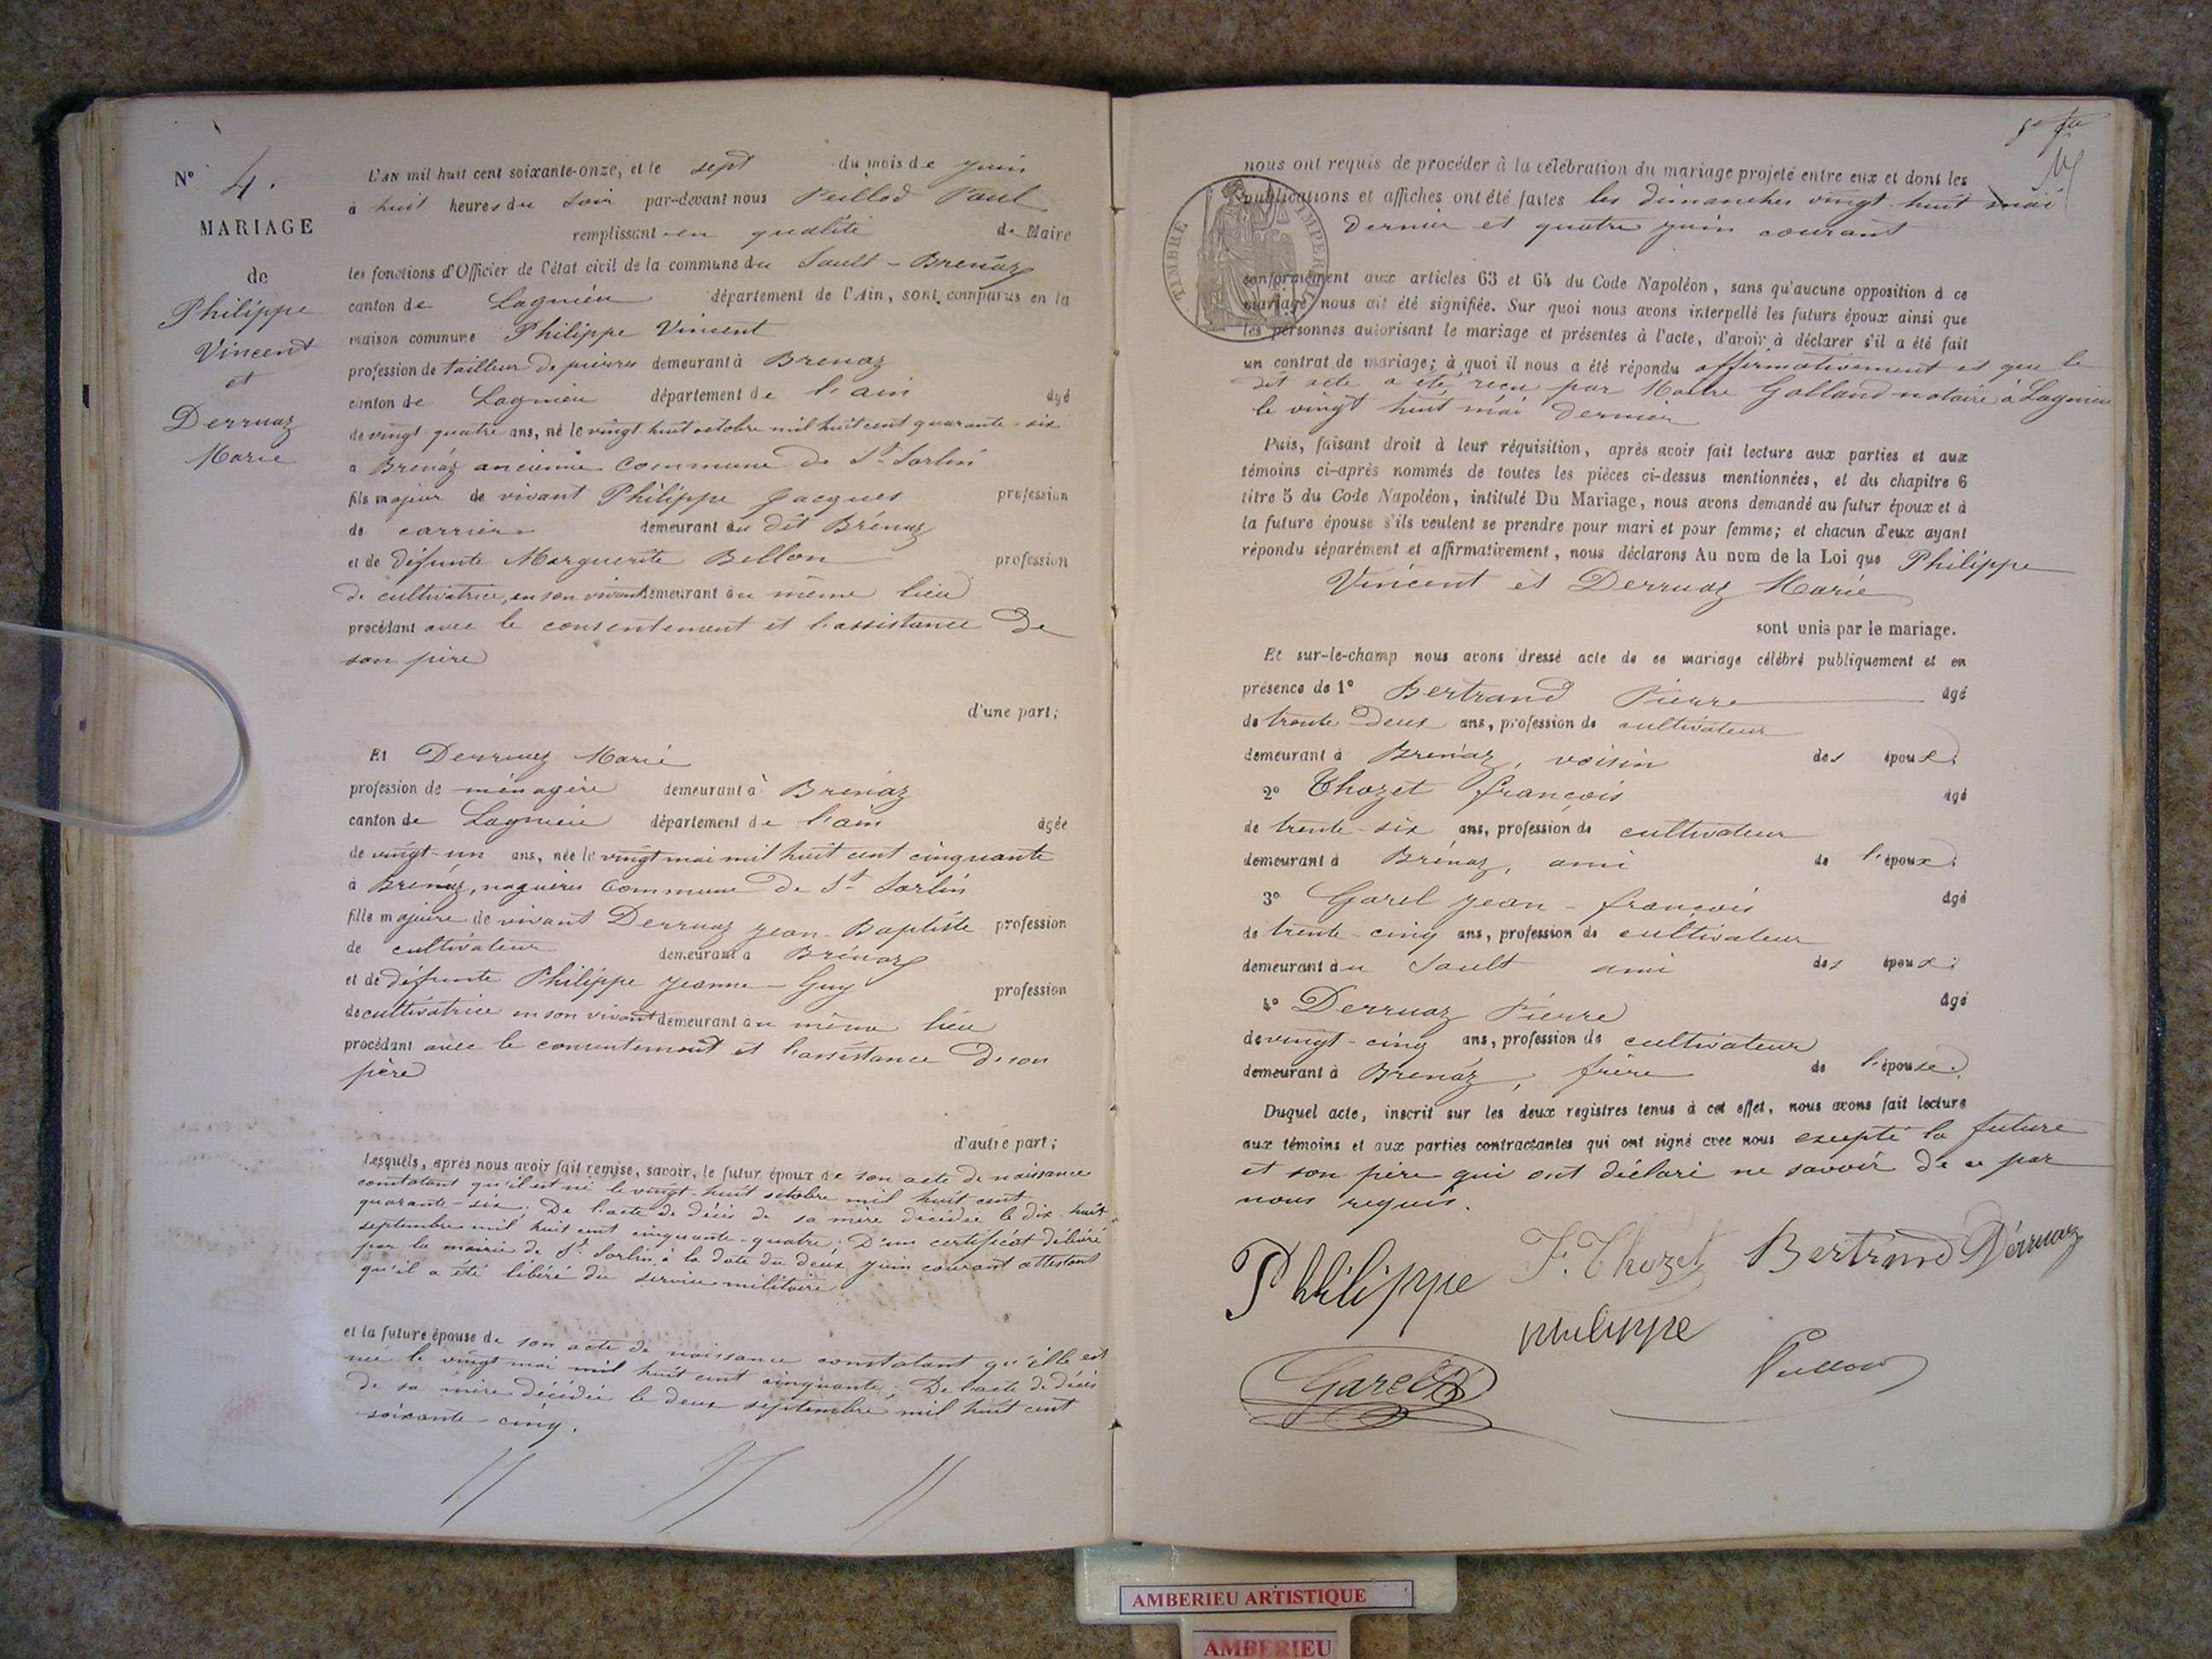 N° 4.
MARIAGE
de
Philippe
Vincent
et
Derruaz
Marie
L'AN mil huit cent soixante-onze, et le sept du mois de juin
à huit heures du soir par-devant nous Peillod Paul
remplissant en qualité de Maire
les fonctions d'Officier de l'état civil de la commune du Sault-Brénaz
canton de Lagnieu département de l'Ain, sont comparus en la
maison commune Philippe Vincent
profession de tailleur de pierres demeurant à Brenaz
canton de Lagnieu département de l'ain âgé
de vingt-quatre ans, né le vingt-huit octobre mil huit cent quarante-six
à Brénaz ancienne commune de St Sorlin
fils majeur de vivant Philippe Jacques profession
de carrier demeurant au dit Brénaz
et de défunte Marguerite Bellon profession
de cultivatrice, en son vivant demeurant au même lieu
procédant avec le consentement et l'assistance de
son père
d'une part;
Et Derruaz Marie
profession de ménagère demeurant à Brénaz
canton de Lagnieu département de l'ain âgée
de vingt-un ans, née le vingt mai mil huit cent cinquante
à Brénaz, naguères commune de St Sorlin
fille majeure de vivant Derruaz Jean-Baptiste profession
de cultivateur demeurant à Brénaz
et de défunte Philippe Jeanne-Guy profession
de cultivatrice en son vivant demeurant au même lieu
procédant avec le consentement et l'assistance de son
père
d'autre part;
Lesquels, après nous avoir fait remise, savoir, le futur époux de son acte de naissance
constatant qu'il est né le vingt-huit octobre mil huit cent
quarante-six; De l'acte de décès de sa mère décédée le dix-huit
septembre mil huit cent cinquante-quatre; D'un certificat délivré
par la mairie de St Sorlin à la date du deux juin courant attestant
qu'il a été libéré du service militaire
et la future épouse de son acte de naissance constatant qu'elle est
née le vingt mai mil huit cent cinquante; De l'acte de décès
de sa mère décédée le deux septembre mil huit cent
soixante-cinq.
nous ont requis de procéder à la célébration du mariage projeté entre eux et dont les
publications et affiches ont été faites les dimanches vingt-huit mai
dernier et quatre juin courant
TIMBRE IMPERIAL
conformément aux articles 63 et 64 du Code Napoléon, sans qu'aucune opposition à ce
mariage nous ait été signifiée. Sur quoi nous avons interpellé les futurs époux ainsi que
les personnes autorisant le mariage et présentes à l'acte, d'avoir à déclarer s'il a été fait
un contrat de mariage; à quoi il nous a été répondu affirmativement et que le
dit acte a été reçu par Maitre Golland notaire à Lagnieu
le vingt huit mai dernier
Puis, faisant droit à leur réquisition, après avoir fait lecture aux parties et aux
témoins ci-après nommés de toutes les pièces ci-dessus mentionnées, et du chapitre 6
titre 5 du Code Napoléon, intitulé Du Mariage, nous avons demandé au futur époux et à
la future épouse s'ils veulent se prendre pour mari et pour femme; et chacun d'eux ayant
répondu séparément et affirmativement, nous déclarons Au nom de la Loi que Philippe
Vincent et Derruaz Marie
sont unis par le mariage.
Et sur-le-champ nous avons dressé acte de ce mariage célébré publiquement et en
présence de 1° Bertrand Pierre âgé
de trente-deux ans, profession de cultivateur
demeurant à Brénaz, voisin des époux;
2° Thozet françois âgé
de trente-six ans, profession de cultivateur
demeurant à Brénaz, ami de l'époux;
3° Garel Jean-françois âgé
de trente-cinq ans, profession de cultivateur
demeurant au Sault ami des époux;
4° Derruaz Pierre âgé
de vingt-cinq ans, profession de cultivateur
demeurant à Brenaz, frère de l'épouse.
Duquel acte, inscrit sur les deux registres tenus à cet effet, nous avons fait lecture
aux témoins et aux parties contractantes qui ont signé avec nous excepté la future
et son père qui ont déclaré ne savoir de ce par
nous requis.
Philippe F. Thozet Bertrand Dérruaz
philippe
Garel Peillod
AMBERIEU ARTISTIQUE
AMBERIEU